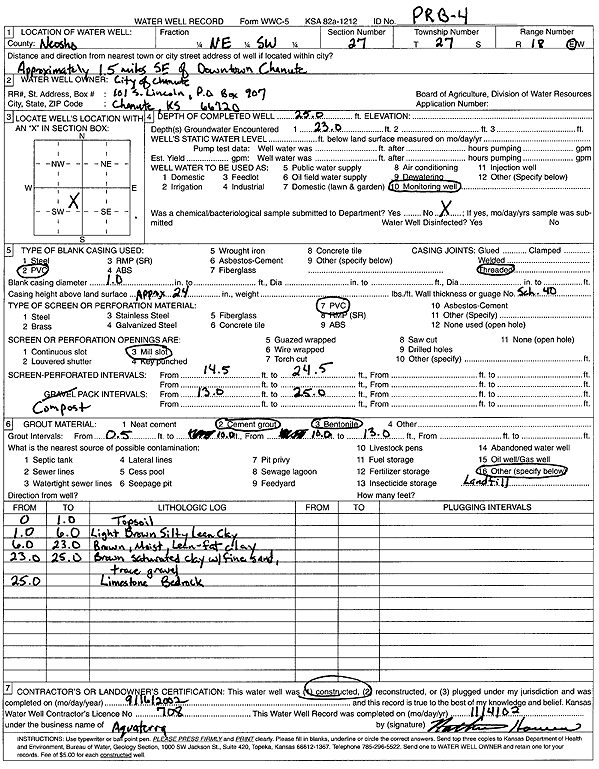 WATER WELL RECORD Form WWC-5 KSA 82a-1212 ID No. PRB-4
1 LOCATION OF WATER WELL: Fraction Section Number Township Number Range Number
County: Neosho ¼ NE ¼ SW ¼ 27 T 27 S R 18 E W
Distance and direction from nearest town or city street address of well if located within city?
Approximately 1.5 miles SE of Downtown Chanute
2 WATER WELL OWNER: City of Chanute
RR#, St. Address, Box # : 101 S. Lincoln, P.O Box 907 Board of Agriculture, Division of Water Resources
City, State, ZIP Code : Chanute, KS 66720 Application Number:
3 LOCATE WELL'S LOCATION WITH AN "X" IN SECTION BOX:
N
NW NE
W E
SW X SE
S
4 DEPTH OF COMPLETED WELL 25.0 ft. ELEVATION:
Depth(s) Groundwater Encountered 1 23.0 ft. 2 ft. 3 ft.
WELL'S STATIC WATER LEVEL ft. below land surface measured on mo/day/yr
Pump test data: Well water was ft. after hours pumping gpm
Est. Yield gpm: Well water was ft. after hours pumping gpm
WELL WATER TO BE USED AS: 5 Public water supply 8 Air conditioning 11 Injection well
1 Domestic 3 Feedlot 6 Oil field water supply 9 Dewatering 12 Other (Specify below)
2 Irrigation 4 Industrial 7 Domestic (lawn & garden) 10 Monitoring well
Was a chemical/bacteriological sample submitted to Department? Yes No X ; If yes, mo/day/yrs sample was sub-
mitted Water Well Disinfected? Yes No
5 TYPE OF BLANK CASING USED: 5 Wrought iron 8 Concrete tile CASING JOINTS: Glued Clamped
1 Steel 3 RMP (SR) 6 Asbestos-Cement 9 Other (specify below) Welded
2 PVC 4 ABS 7 Fiberglass Threaded
Blank casing diameter 1.0 in. to ft., Dia in. to ft., Dia in. to ft.
Casing height above land surface Approx 24 in., weight lbs./ft. Wall thickness or guage No. Sch. 40
TYPE OF SCREEN OR PERFORATION MATERIAL: 7 PVC 10 Asbestos-Cement
1 Steel 3 Stainless Steel 5 Fiberglass 8 RMP (SR) 11 Other (Specify)
2 Brass 4 Galvanized Steel 6 Concrete tile 9 ABS 12 None used (open hole)
SCREEN OR PERFORATION OPENINGS ARE: 5 Guazed wrapped 8 Saw cut 11 None (open hole)
1 Continuous slot 3 Mill slot 6 Wire wrapped 9 Drilled holes
2 Louvered shutter 4 Key punched 7 Torch cut 10 Other (specify) ft.
SCREEN-PERFORATED INTERVALS: From 14.5 ft. to 24.5 ft., From ft. to ft.
From ft. to ft., From ft. to ft.
GRAVEL PACK INTERVALS: From 13.0 ft. to 25.0 ft., From ft. to ft.
Compost From ft. to ft., From ft. to ft.
6 GROUT MATERIAL: 1 Neat cement 2 Cement grout 3 Bentonite 4 Other
Grout Intervals: From 0.5 ft. to 10.0 ft., From 10.0 ft. to 13.0 ft., From ft. to ft.
What is the nearest source of possible contamination: 10 Livestock pens 14 Abandoned water well
1 Septic tank 4 Lateral lines 7 Pit privy 11 Fuel storage 15 Oil well/Gas well
2 Sewer lines 5 Cess pool 8 Sewage lagoon 12 Fertilizer storage 16 Other (specify below)
3 Watertight sewer lines 6 Seepage pit 9 Feedyard 13 Insecticide storage Landfill
Direction from well? How many feet?
FROM TO LITHOLOGIC LOG FROM TO PLUGGING INTERVALS
0 1.0 Topsoil
1.0 6.0 Light Brown Silty Lean Clay
6.0 23.0 Brown, Moist, Lean-fat clay
23.0 25.0 Brown saturated clay w/ fine sand,
trace gravel
25.0 Limestone Bedrock
7 CONTRACTOR'S OR LANDOWNER'S CERTIFICATION: This water well was (1) constructed, (2) reconstructed, or (3) plugged under my jurisdiction and was
completed on (mo/day/year) 9/16/2002 and this record is true to the best of my knowledge and belief. Kansas
Water Well Contractor's Licence No 708 This Water Well Record was completed on (mo/day/yr) 11/4/02
under the business name of Aquaterra by (signature)
INSTRUCTIONS: Use typewriter or ball point pen. PLEASE PRESS FIRMLY and PRINT clearly. Please fill in blanks, underline or circle the correct answers. Send top three copies to Kansas Department of Health
and Environment, Bureau of Water, Geology Section, 1000 SW Jackson St., Suite 420, Topeka, Kansas 66612-1367. Telephone 785-296-5522. Send one to WATER WELL OWNER and retain one for your
records. Fee of $5.00 for each constructed well.